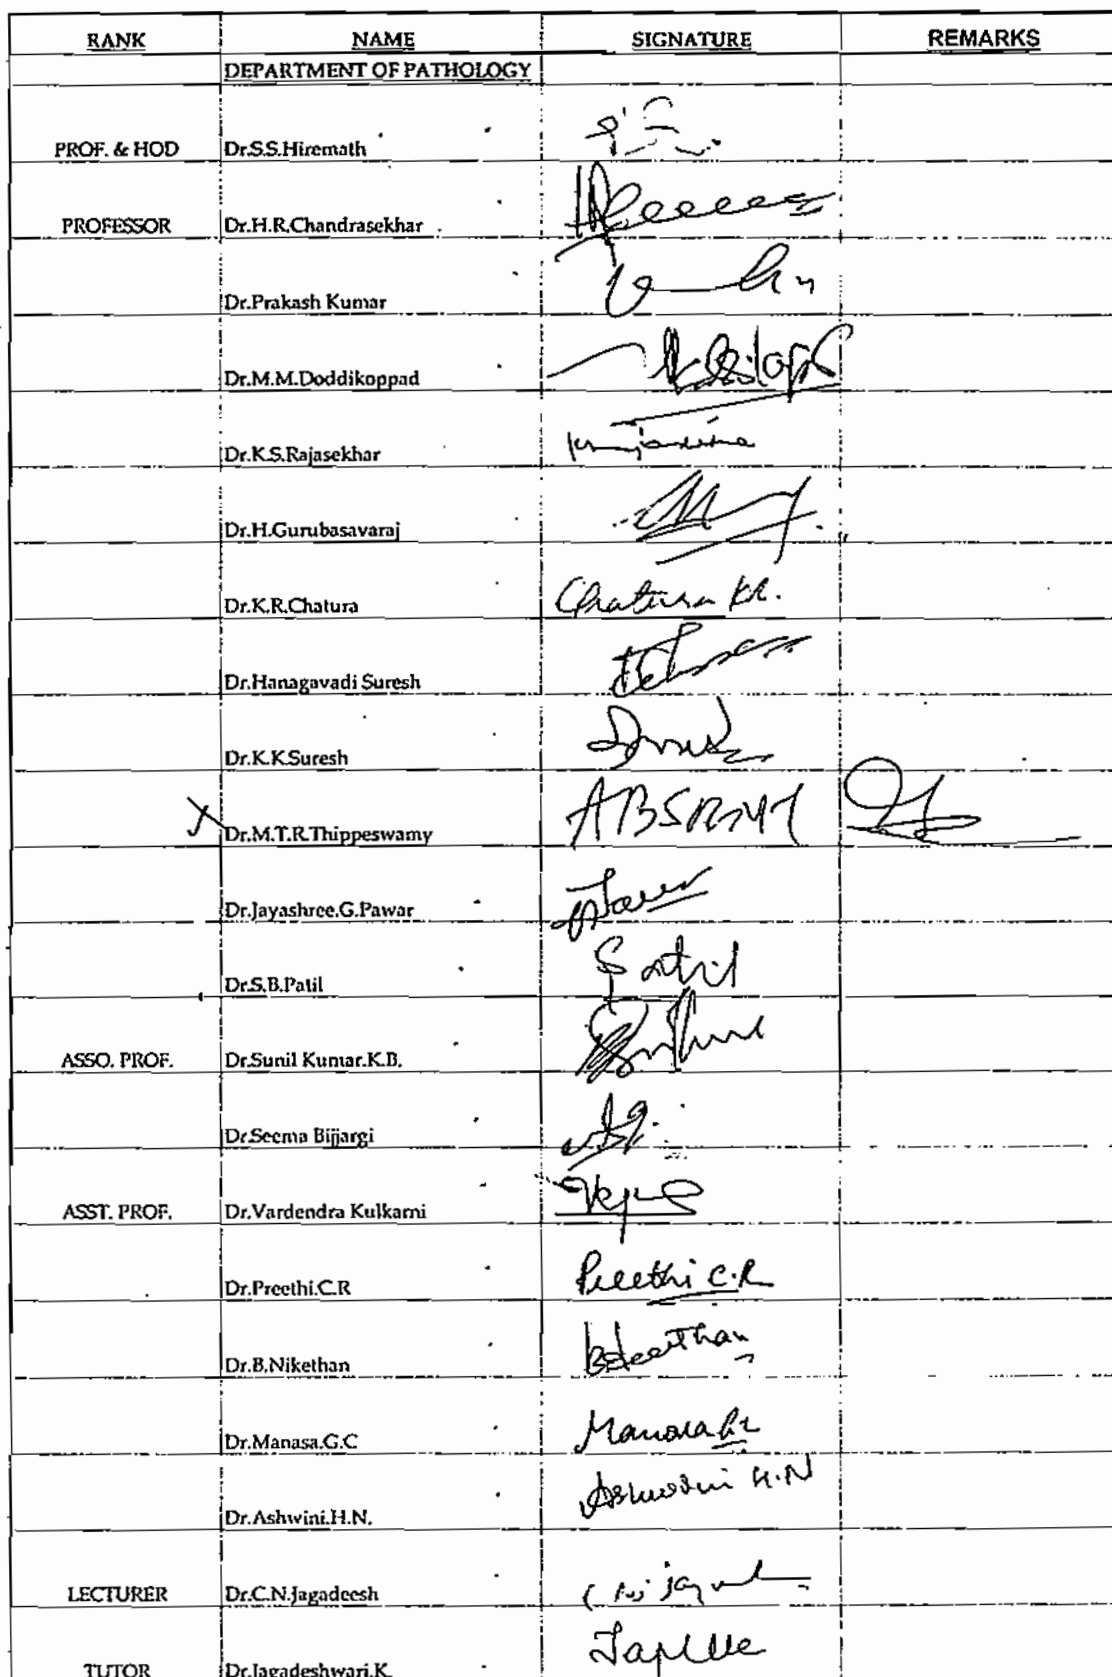 RANK NAME SIGNATURE REMARKS
DEPARTMENT OF PATHOLOGY
PROF. & HOD Dr.S.S.Hiremath
PROFESSOR Dr.H.R.Chandrasekhar
Dr.Prakash Kumar
Dr.M.M.Doddikoppad
Dr.K.S.Rajasekhar
Dr.H.Gurubasavaraj
Dr.K.R.Chatura Chatura KR.
Dr.Hanagavadi Suresh
Dr.K.K.Suresh
Dr.M.T.R.Thippeswamy
Dr.Jayashree.G.Pawar
Dr.S.B.Patil
ASSO. PROF. Dr.Sunil Kumar.K.B.
Dr.Seema Bijjargi
ASST. PROF. Dr.Vardendra Kulkarni
Dr.Preethi.C.R Preethi C.R
Dr.B.Nikethan
Dr.Manasa.G.C Manasa
Dr.Ashwini.H.N. Ashwini H.N
LECTURER Dr.C.N.Jagadeesh
TUTOR Dr.Jagadeshwari.K.